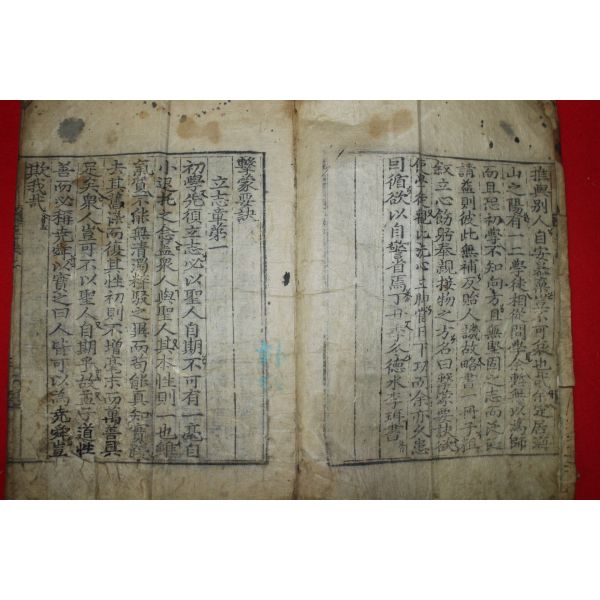 推與別人自安暴棄豈不可哀也哉余定居海
山之陽有一二學徒相從問學余慚無以爲師
而且恐初學不知向方且無堅固之志而泛泛
請益則彼此無補反貽人譏故略書一冊子粗
敍立心飭躬奉親接物之方名曰擊蒙要訣欲
使學徒觀此洗心立脚當日下功而余亦久患
因循欲以自警省焉丁丑季冬德水李珥書
擊蒙要訣
立志章第一
初學先須立志必以聖人自期不可有一毫自
小退托之念蓋衆人與聖人其本性則一也雖
氣質不能無淸濁粹駁之異而苟能眞知實踐
去其舊染而復其性初則不增毫末而萬善具
足矣衆人豈可不以聖人自期乎故孟子道性
善而必稱堯舜以實之曰人皆可以爲堯舜豈
欺我哉